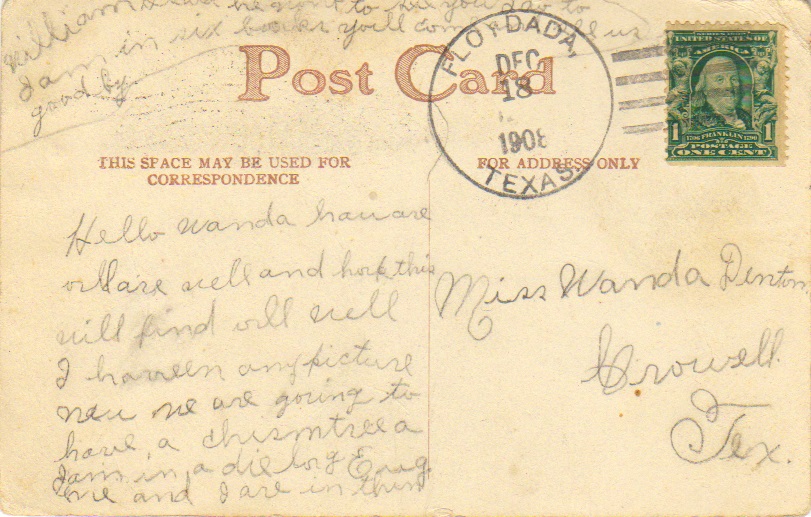 William I said he want to see you to to
I am in six books you'll come tell us
good by
Post Card
FLOYDADA,
DEC
18
1908
TEXAS.
SERIES 1902
UNITED STATES OF
AMERICA
1 1706 FRANKLIN 1790 1
POSTAGE
ONE CENT
THIS SPACE MAY BE USED FOR
CORRESPONDENCE
FOR ADDRESS ONLY
Hello Wanda hau are
oll are well and hope this
will find oll well
I haveen any picture
new we are going to
have a chrismtree a
I am in a dielorg Eeug
me and I are in thim
Miss Wanda Denton,
Crowell
Tex.